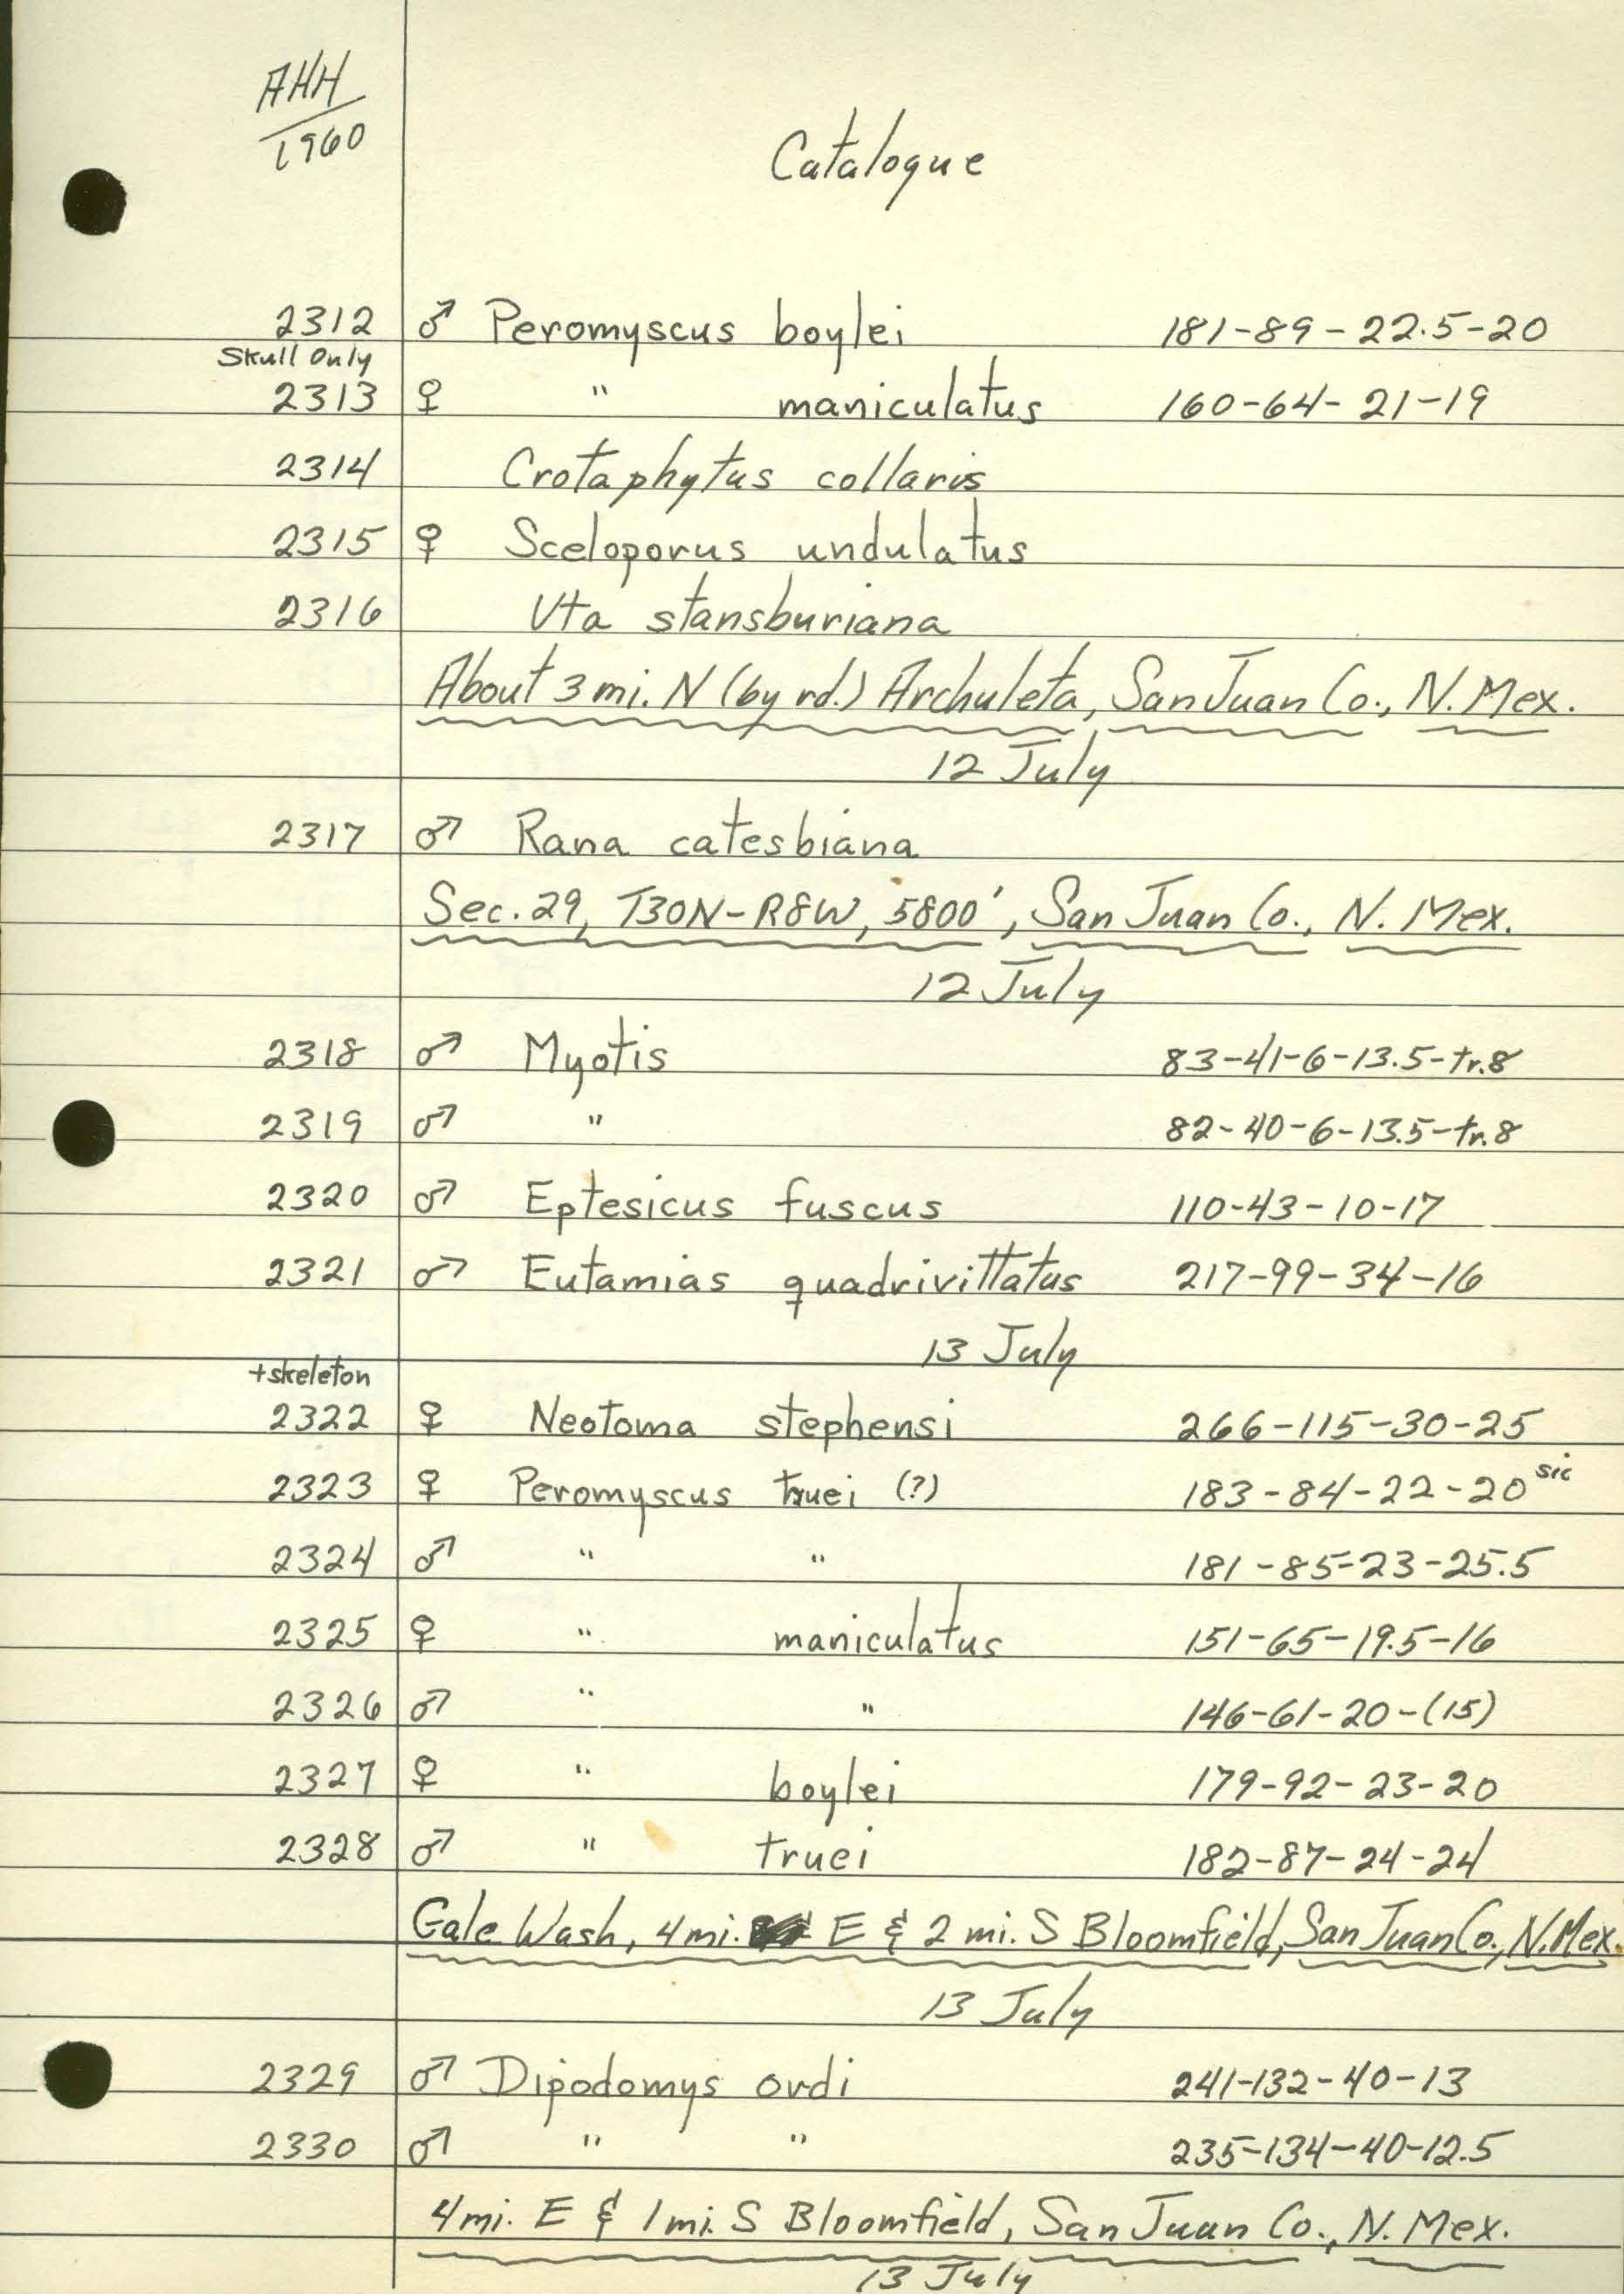 AHH
1960
Catalogue
2312 ♂ Peromyscus boylei 181-89-22.5-20
Skull Only
2313 ♀ " maniculatus 160-64-21-19
2314 Crotaphytus collaris
2315 ♀ Sceloporus undulatus
2316 Uta stansburiana
About 3 mi. N (by rd.) Archuleta, San Juan Co., N. Mex.
12 July
2317 ♂ Rana catesbiana
Sec. 29, T30N-R8W, 5800', San Juan Co., N. Mex.
12 July
2318 ♂ Myotis 83-41-6-13.5-tr.8
2319 ♂ " 82-40-6-13.5-tr.8
2320 ♂ Eptesicus fuscus 110-43-10-17
2321 ♂ Eutamias quadrivittatus 217-99-34-16
13 July
+skeleton
2322 ♀ Neotoma stephensi 266-115-30-25
2323 ♀ Peromyscus truei (?) 183-84-22-20 sic
2324 ♂ " " 181-85-23-25.5
2325 ♀ " maniculatus 151-65-19.5-16
2326 ♂ " " 146-61-20-(15)
2327 ♀ " boylei 179-92-23-20
2328 ♂ " truei 182-87-24-24
Gale Wash, 4 mi. E & 2 mi. S Bloomfield, San Juan Co., N. Mex.
13 July
2329 ♂ Dipodomys ordi 241-132-40-13
2330 ♂ " " 235-134-40-12.5
4 mi. E & 1 mi. S Bloomfield, San Juan Co., N. Mex.
13 July